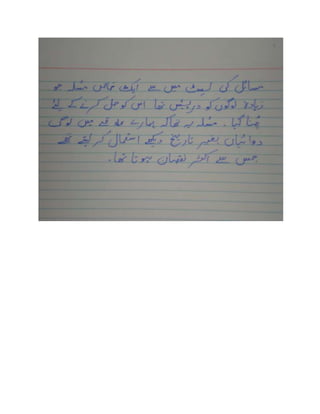 مسائل کی لسٹ میں سے ایک خاص مسٔلہ جو
زیادہ لوگوں کو درپیش تھا اس کو حل کرنے کے لیٔے
چُنا گیا۔ مسٔلہ یہ تھا کہ ہمارے علاقے میں لوگ
دوائیاں بغیر تاریخ دیکھے استعمال کر لیتے تھے
جس سے اکثر نقصان ہوتا تھا۔